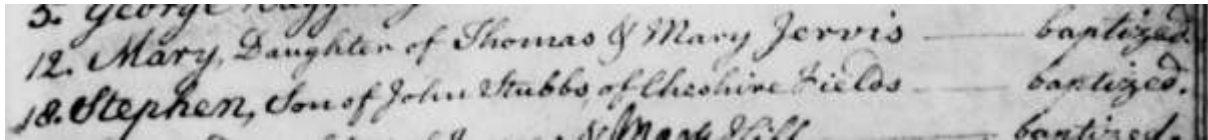 5. George
12. Mary, Daughter of Thomas & Mary Jervis —— baptized.
18. Stephen, Son of John Stubbs, of Cheshire Fields —— baptized.
& Mary Hill baptized.